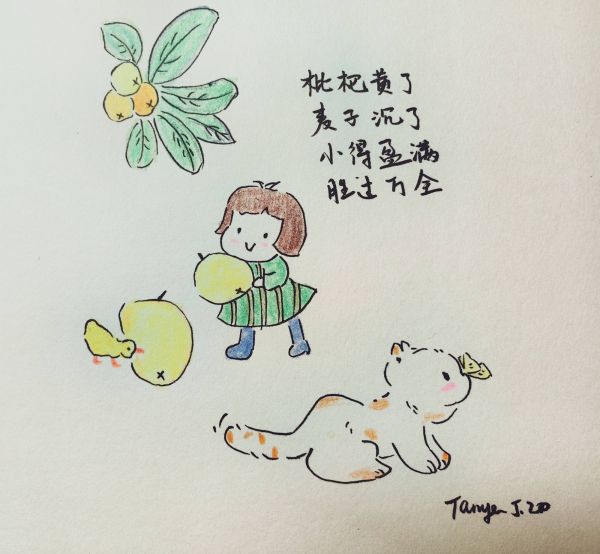 枇杷黄了
麦子沉了
小得盈满
胜过万全